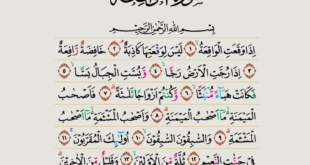 بِسْمِ اللَّهِ الرَّحْمَٰنِ الرَّحِيمِ
إِذَا وَقَعَتِ الْوَاقِعَةُ ۝١ لَيْسَ لِوَقْعَتِهَا كَاذِبَةٌ ۝٢ خَافِضَةٌ رَّافِعَةٌ
۝٣ إِذَا رُجَّتِ الْأَرْضُ رَجًّا ۝٤ وَبُسَّتِ الْجِبَالُ بَسًّا ۝٥
فَكَانَتْ هَبَاءً مُّنبَثًّا ۝٦ وَكُنتُمْ أَزْوَاجًا ثَلَاثَةً ۝٧ فَأَصْحَابُ
الْمَيْمَنَةِ مَا أَصْحَابُ الْمَيْمَنَةِ ۝٨ وَأَصْحَابُ الْمَشْأَمَةِ مَا أَصْحَابُ
الْمَشْأَمَةِ ۝٩ وَالسَّابِقُونَ السَّابِقُونَ ۝١٠ أُولَٰئِكَ الْمُقَرَّبُونَ ۝١١
فِي جَنَّاتِ النَّعِيمِ ۝١٢ ثُلَّةٌ مِّنَ الْأَوَّلِينَ ۝١٣ وَقَلِيلٌ مِّنَ الْآخِرِينَ